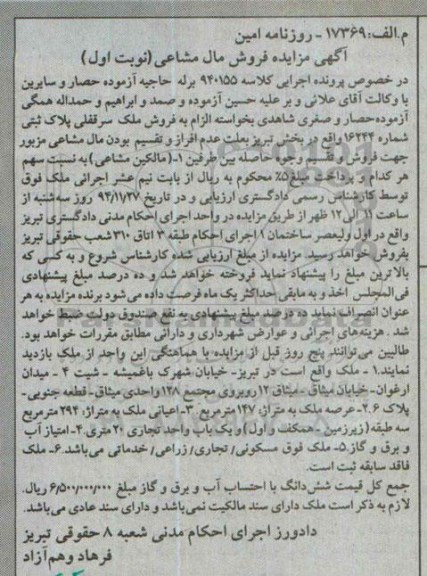 م.الف:۱۷۳۶۹ - روزنامه امین
آگهی مزایده فروش مال مشاعی (نوبت اول)
در خصوص پرونده اجرایی کلاسه ۹۴۰۱۵۵ برله حاجیه آزموده حصار و سایرین
با وکالت آقای علائی و بر علیه حسین آزموده و صمد و ابراهیم و حمداله همگی
آزموده‌حصار و صغری شاهدی بخواسته الزام به فروش ملک سرقفلی پلاک ثبتی
شماره ۱۶۲۴۴ واقع در بخش تبریز بعلت عدم افراز و تقسیم بودن مال مشاعی مزبور
جهت فروش و تقسیم وجوه حاصله بین طرفین ۱- (مالکین مشاعی) به نسبت سهم
هر کدام و پرداخت مبلغ ۵٪ محکوم به ریال از بابت نیم عشر اجرائی ملک فوق
توسط کارشناس رسمی دادگستری ارزیابی و در تاریخ ۹۴/۱۱/۲۷ روز سه‌شنبه از
ساعت ۱۱ الی ۱۲ ظهر از طریق مزایده در واحد اجرای احکام مدنی دادگستری تبریز
واقع در اول ولیعصر ساختمان ۱ اجرای احکام طبقه ۳ اتاق ۳۱۰ شعب حقوقی تبریز
بفروش خواهد رسید. مزایده از مبلغ ارزیابی شده کارشناس شروع و به کسی که
بالاترین مبلغ را پیشنهاد نماید فروخته خواهد شد و ده درصد مبلغ پیشنهادی
فی‌المجلس اخذ و به مابقی حداکثر یک ماه فرصت داده می‌شود برنده مزایده به هر
عنوان انصراف نماید ده درصد مبلغ پیشنهادی به نفع صندوق دولت ضبط خواهد
شد . هزینه‌های اجرائی و عوارض شهرداری و دارائی مطابق مقررات خواهد بود.
طالبین می‌توانند پنج روز قبل از مزایده با هماهنگی این واحد از ملک بازدید
نمایند.۱ - ملک واقع است در تبریز- خیابان شهرک باغمیشه - شیت ۴ - میدان
ارغوان- خیابان میثاق - میثاق ۱۲ روبروی مجتمع ۱۲۸ واحدی میثاق- قطعه جنوبی-
پلاک ۲.۶- عرصه ملک به متراژ: ۱۴۷ مترمربع ۳- اعیانی ملک به متراژ: ۲۹۴ مترمربع
سه طبقه (زیرزمین - همکف و اول) و یک باب واحد تجاری ۲۰ متری.۴- امتیاز آب
و برق و گاز.۵- ملک فوق مسکونی/ تجاری/ زراعی/ خدماتی می‌باشد.۶- ملک
فاقد سابقه ثبت است.
جمع کل قیمت شش‌دانگ با احتساب آب و برق و گاز مبلغ ۶/۵۰۰/۰۰۰/۰۰۰ ریال.
لازم به ذکر است ملک دارای سند مالکیت نمی‌باشد و دارای سند عادی می‌باشد.
دادورز اجرای احکام مدنی شعبه ۸ حقوقی تبریز
فرهاد وهم‌آزاد